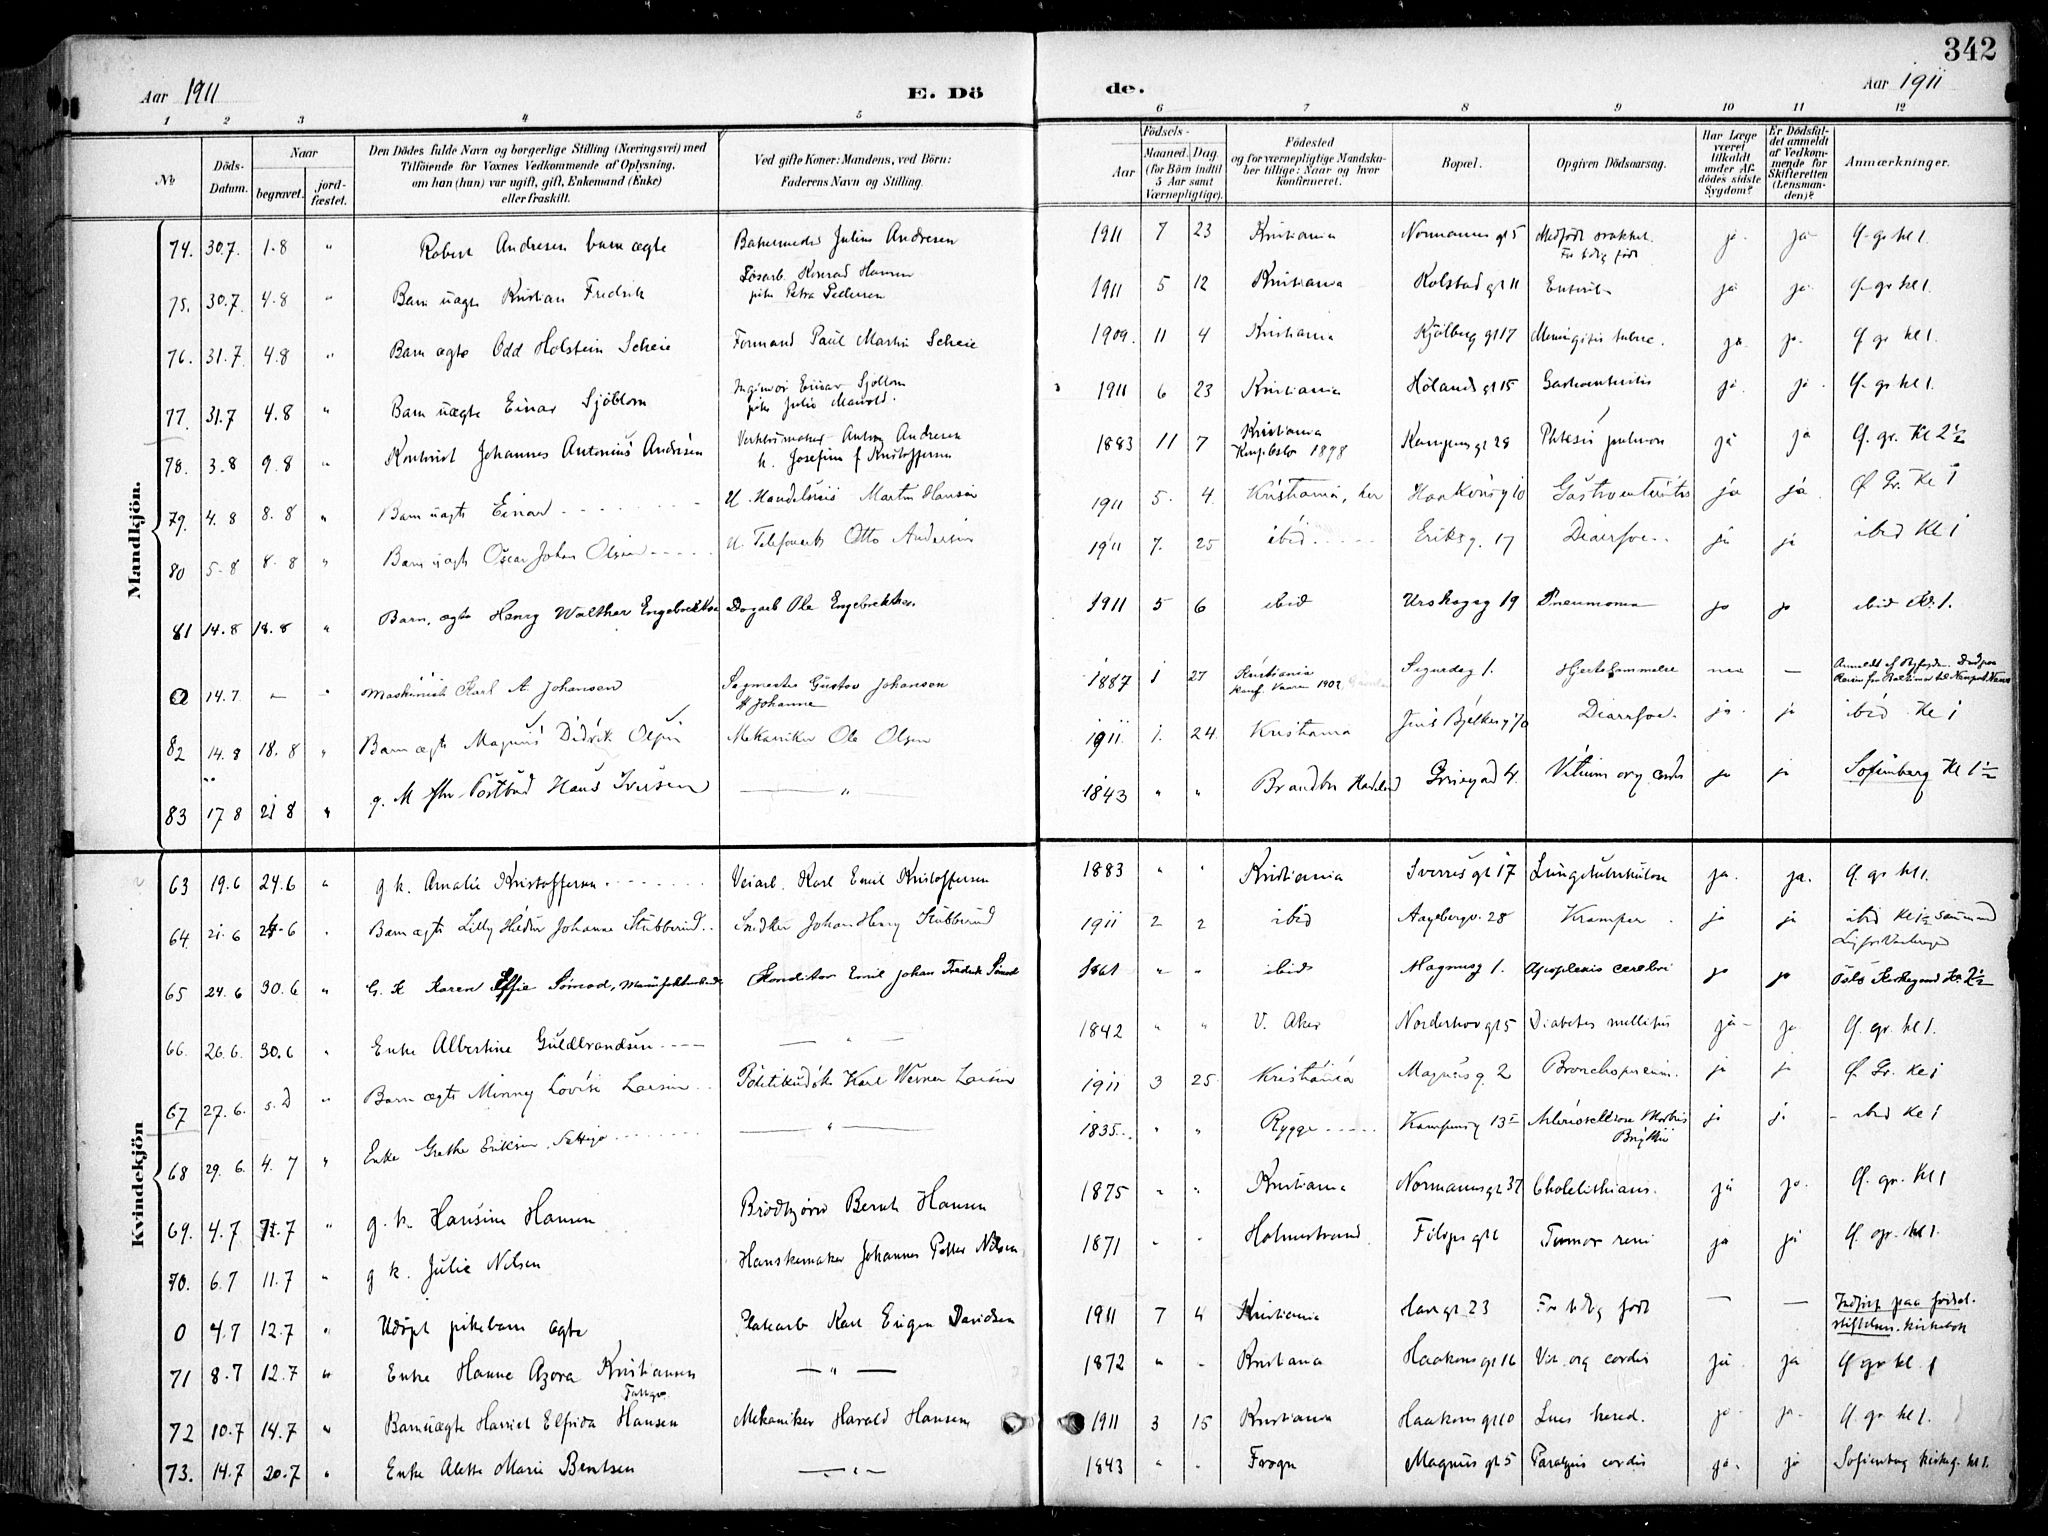 342
Aar 1911
E. Döde.
Aar 1911
1 2 3 4 5 6 7 8 9 10 11 12
№
Döds-Datum.
Naar begravet. jordfæstet.
Den Dödes fulde Navn og borgerlige Stilling (Næringsvei) med Tilföiende for Voxnes Vedkommende af Oplysning, om han (hun) var ugift, gift, Enkemand (Enke) eller fraskilt.
Ved gifte Koner: Mandens, ved Börn: Faderens Navn og Stilling.
Födsels-
Aar
Maaned. Dag (for Börn indtil 5 Aar samt Værnepligtige).
Födested og for værnepligtige Mandskaber tillige: Naar og hvor konfirmeret.
Bopæl.
Opgiven Dödsaarsag.
Har Læge været tilkaldt under Afdödes sidste Sygdom?
Er Dödsfaldet anmeldt af Vedkommende for Skifteretten (Lensmanden)?
Anmærkninger.
Mandkjön.
74. 30.7. 1.8 " Robert Andresen barn ægte Julius Andresen 1911 7 23 Kristiania Normannsgt 5 Medfødt ja ja Ø. gr kl 1.
75. 30.7 4.8 " Barn uægte Kristian Fredrik Løsarb. Konrad Hansen pike Petra Pedersen 1911 5 12 Kristiania Kolstadgt 11 ja ja Ø gr kl 1.
76. 31.7 4.8 " Barn ægte Odd Holstein Scheie Formand Paul Martin Scheie 1909. 11 4 Kristiania Kjölberggt 17 Meningitis tuberc. ja. ja. Ø gr kl 1.
77. 31.7 4.8 " Barn uægte Einar Sjöblom Einar Sjöblom pike Julie 1911 6 23 Kristiania Hølandsgt 15 Gastroenteritis ja. ja. Ø. gr kl 1.
78. 3.8 9.8 " Kontorist Johannes Antonius Andresen Anton Andresen h. Josefine f. Kristoffersen 1883 11 7 Kristiania 1898 Kampensgt 28 Phtisis pulmon ja ja Ø. gr. Kl 2½
79. 4.8 8.8 " Barn uægte Einar Martin Hansen 1911 5. 4. Kristiania, her Haakonsg 10 Gastroenteritis ja ja Ø Gr. Kl 1
80 5.8 8.8 " Barn uægte Oscar Johan Olsen U. Telefonarb Otto Andersen 1911 7. 25 ibid Eriksg. 17 Diarrhoe ja ja ibid Kl 1
81 14.8 18.8 " Barn, ægte Henry Walther Engebrektsen Dagarb Ole Engebrektsen. 1911 5 6 ibid Urskogsg 19 Pneumonia ja ja ibid Kl. 1.
0 14.7. — " Maskinist Karl A. Johansen Sagmester Gustav Johansen & Johanne 1887 1 27 Kristiania Konf. 1902 Sigurdsg 1. Hjertelammelse nei —
82 14.8 18.8 " Barn ægte Magnus Didrik Olsen Mekaniker Ole Olsen 1911. 1. 24. Kristiania Jens Bjelkesg 70 Diarrhoe. ja. ja ibid Kl 1
83 17 8 21 8 " g. M Postbud Hans Iversen — " — 1843 " " Brandbu Hadeland Grüsgad 4. Vitium org cordis ja ja Sofienberg Kl 1½
Kvindekjön
63 19.6 24.6 " g. k. Amalie Kristoffersen Veiarb. Karl Emil Kristoffersen 1883 " " Kristiania Sverresgt 17 Lungetuberkulose ja. ja. Ø. gr kl 1.
64. 21.6 26.6 " Barn ægte Lilly Johanne Stubberud Snedker Johan Henry Stubberud 1911 2 2 ibid Aagebergv. 28 Kramper ja ja ibid
65 24.6 30.6 " G. K Karen Sömod, Konditor Emil Johan Fredrik Sömod 1861 " " ibid Magnusg 1. Apoplexia cerebri ja ja Oslo Kirkegaard Kl. 2½
66. 26.6. 30.6 " Enke Albertine Guldbrandsen — " — 1842 " " V. Aker Norderhovgt 5 Diabetes mellitus ja ja Ø. gr. kl 1.
67 27.6. s. D " Barn ægte Minny Lovise Larsen Karl Werner Larsen 1911 3 25 Kristiania Magnusg. 2 Bronchopneum. ja ja Ø. Gr. Kl 1
68 29.6. 4.7 " Enke Grethe Eriksen, — " — 1835 " " Rygge Kampensg 13 Morbus Brightii ja ja ibid Kl 1
69. 4.7 11.7 " g. k. Hansine Hansen Brödkjører Bernt Hansen 1875 " " Kristiania Normannsgt 37 Cholelithiasis. ja ja. Ø. gr. Kl 1
70. 6.7 11.7 " g k. Julie Nilsen Hanskemaker Johannes Petter Nilsen 1871 " " Holmestrand Filipsgt Tumor reni ja ja Ø. gr. kl 1.
0 4.7 12.7 " Udöpt pikebarn ægte Platearb Karl Eugen Davidsen 1911 7 4 Kristiania Haregt 23 For tidlig født — — Indført paa fødselsstiftelsens kirkebok
71 8.7 12.7 " Enke Hanne Azora Kristiansen — " — 1872 " " Kristiania Haakonsgt 16 Vit. org cordis ja. ja Ø gr kl. 1
72 10.7 14.7 " Barn uægte Harriet Elfrida Hansen Mekaniker Harald Hansen 1911 3 15 Kristiania Haakonsgt 10 Lues hered. ja ja. Ø. gr kl 1.
73. 14.7 20.7 " Enke Alette Marie Bentsen — " — 1843 " " Frogn Magnusgt 5 Paralysis cordis ja. ja Sofienberg kirkeg. kl 1.